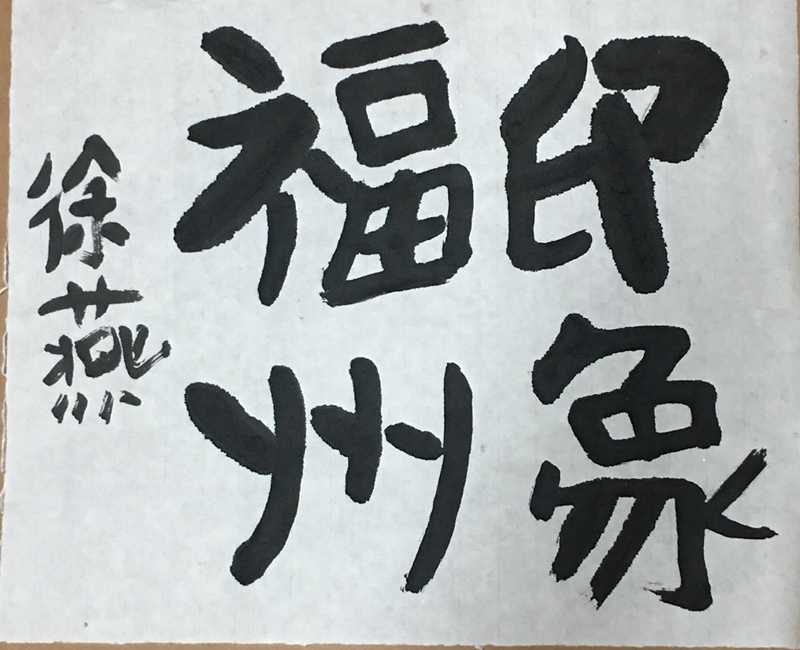 印象
福州
徐燕